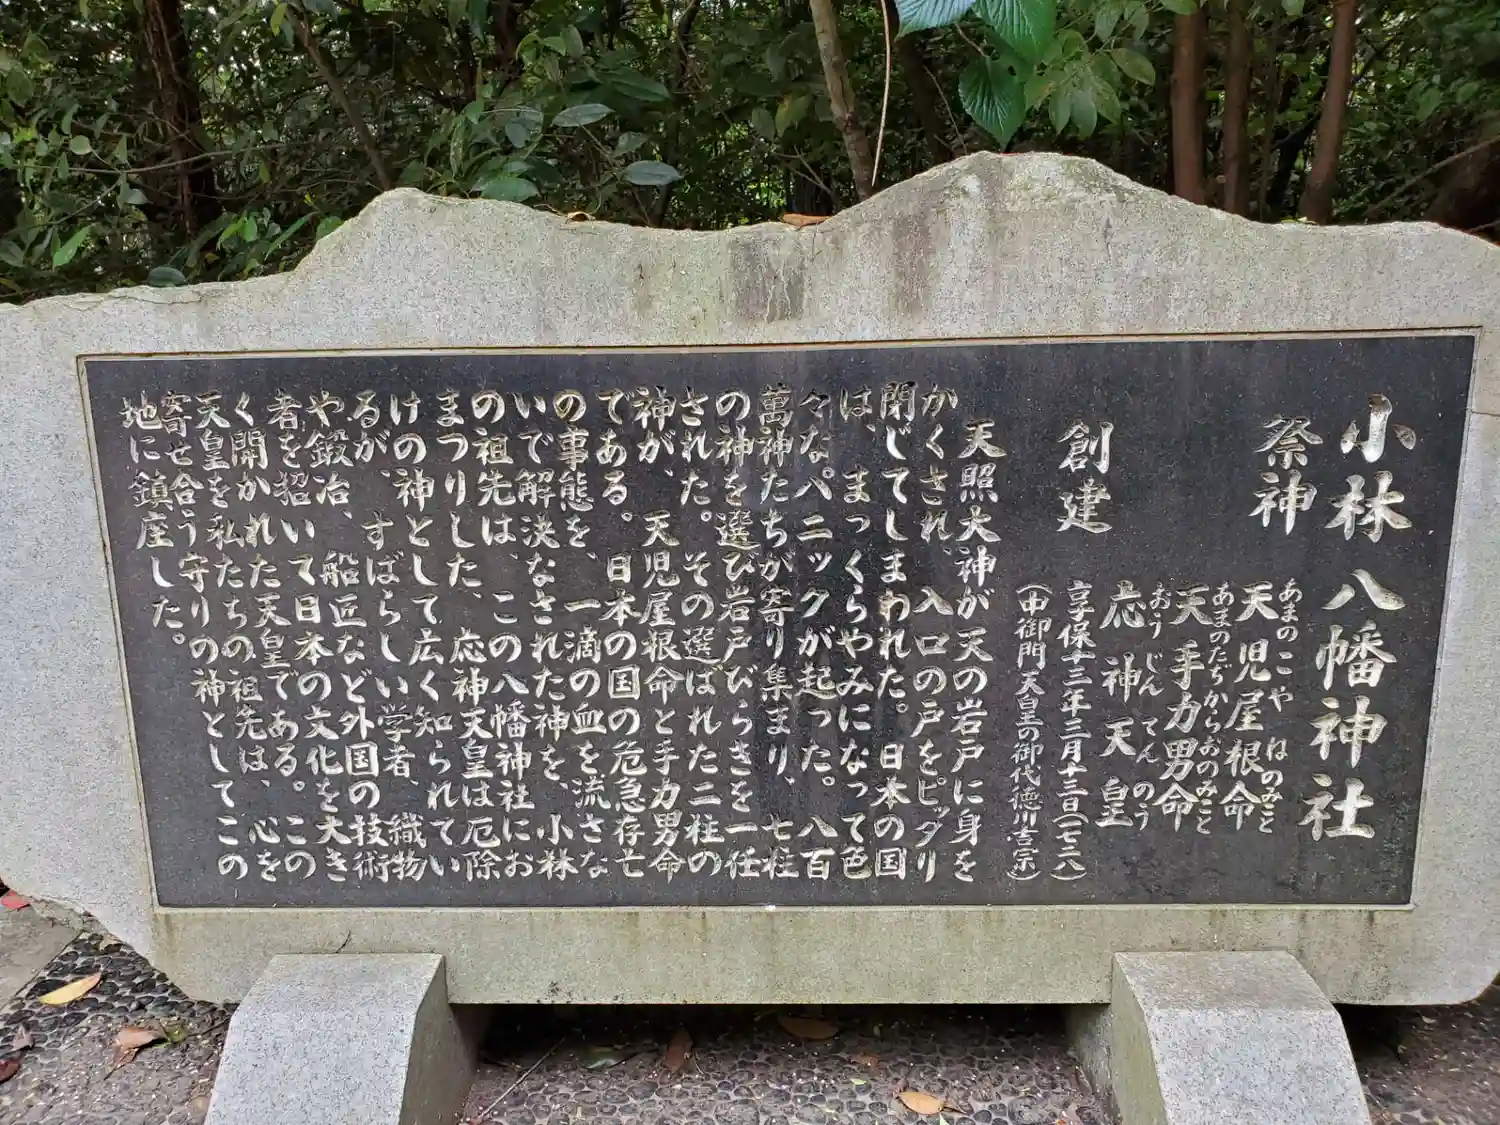 小林八幡神社
祭神
あまのこやねのみこと
天児屋根命
あまのたぢからおのみこと
天手力男命
おうじんてんのう
応神天皇
創建
享保十三年三月十三日(一七二八)
(中御門天皇の御代徳川吉宗)
天照大神が天の岩戸に身を
かくされ、入口の戸をピッタリ
閉じてしまわれた。日本の国
は、まっくらやみになって色
々な。パニックが起った。八百
萬神たちが寄り集まり、七柱
の神を選び岩戸びらきを一任
された。その選ばれた二柱の
神が、天児屋根命と手力男命
である。日本の国の危急存亡
の事態を、一滴の血を流さな
いで解決なされた神を、小林
の祖先は、この八幡神社にお
まつりした、応神天皇は厄除
けの神として広く知られてい
るが、すばらしい学者、織物
や鍛冶、船匠など外国の技術
者を招いて日本の文化を大き
く開かれた天皇である。この
天皇を私たちの祖先は、心を
寄せ合う守りの神としてこの
地に鎮座した。